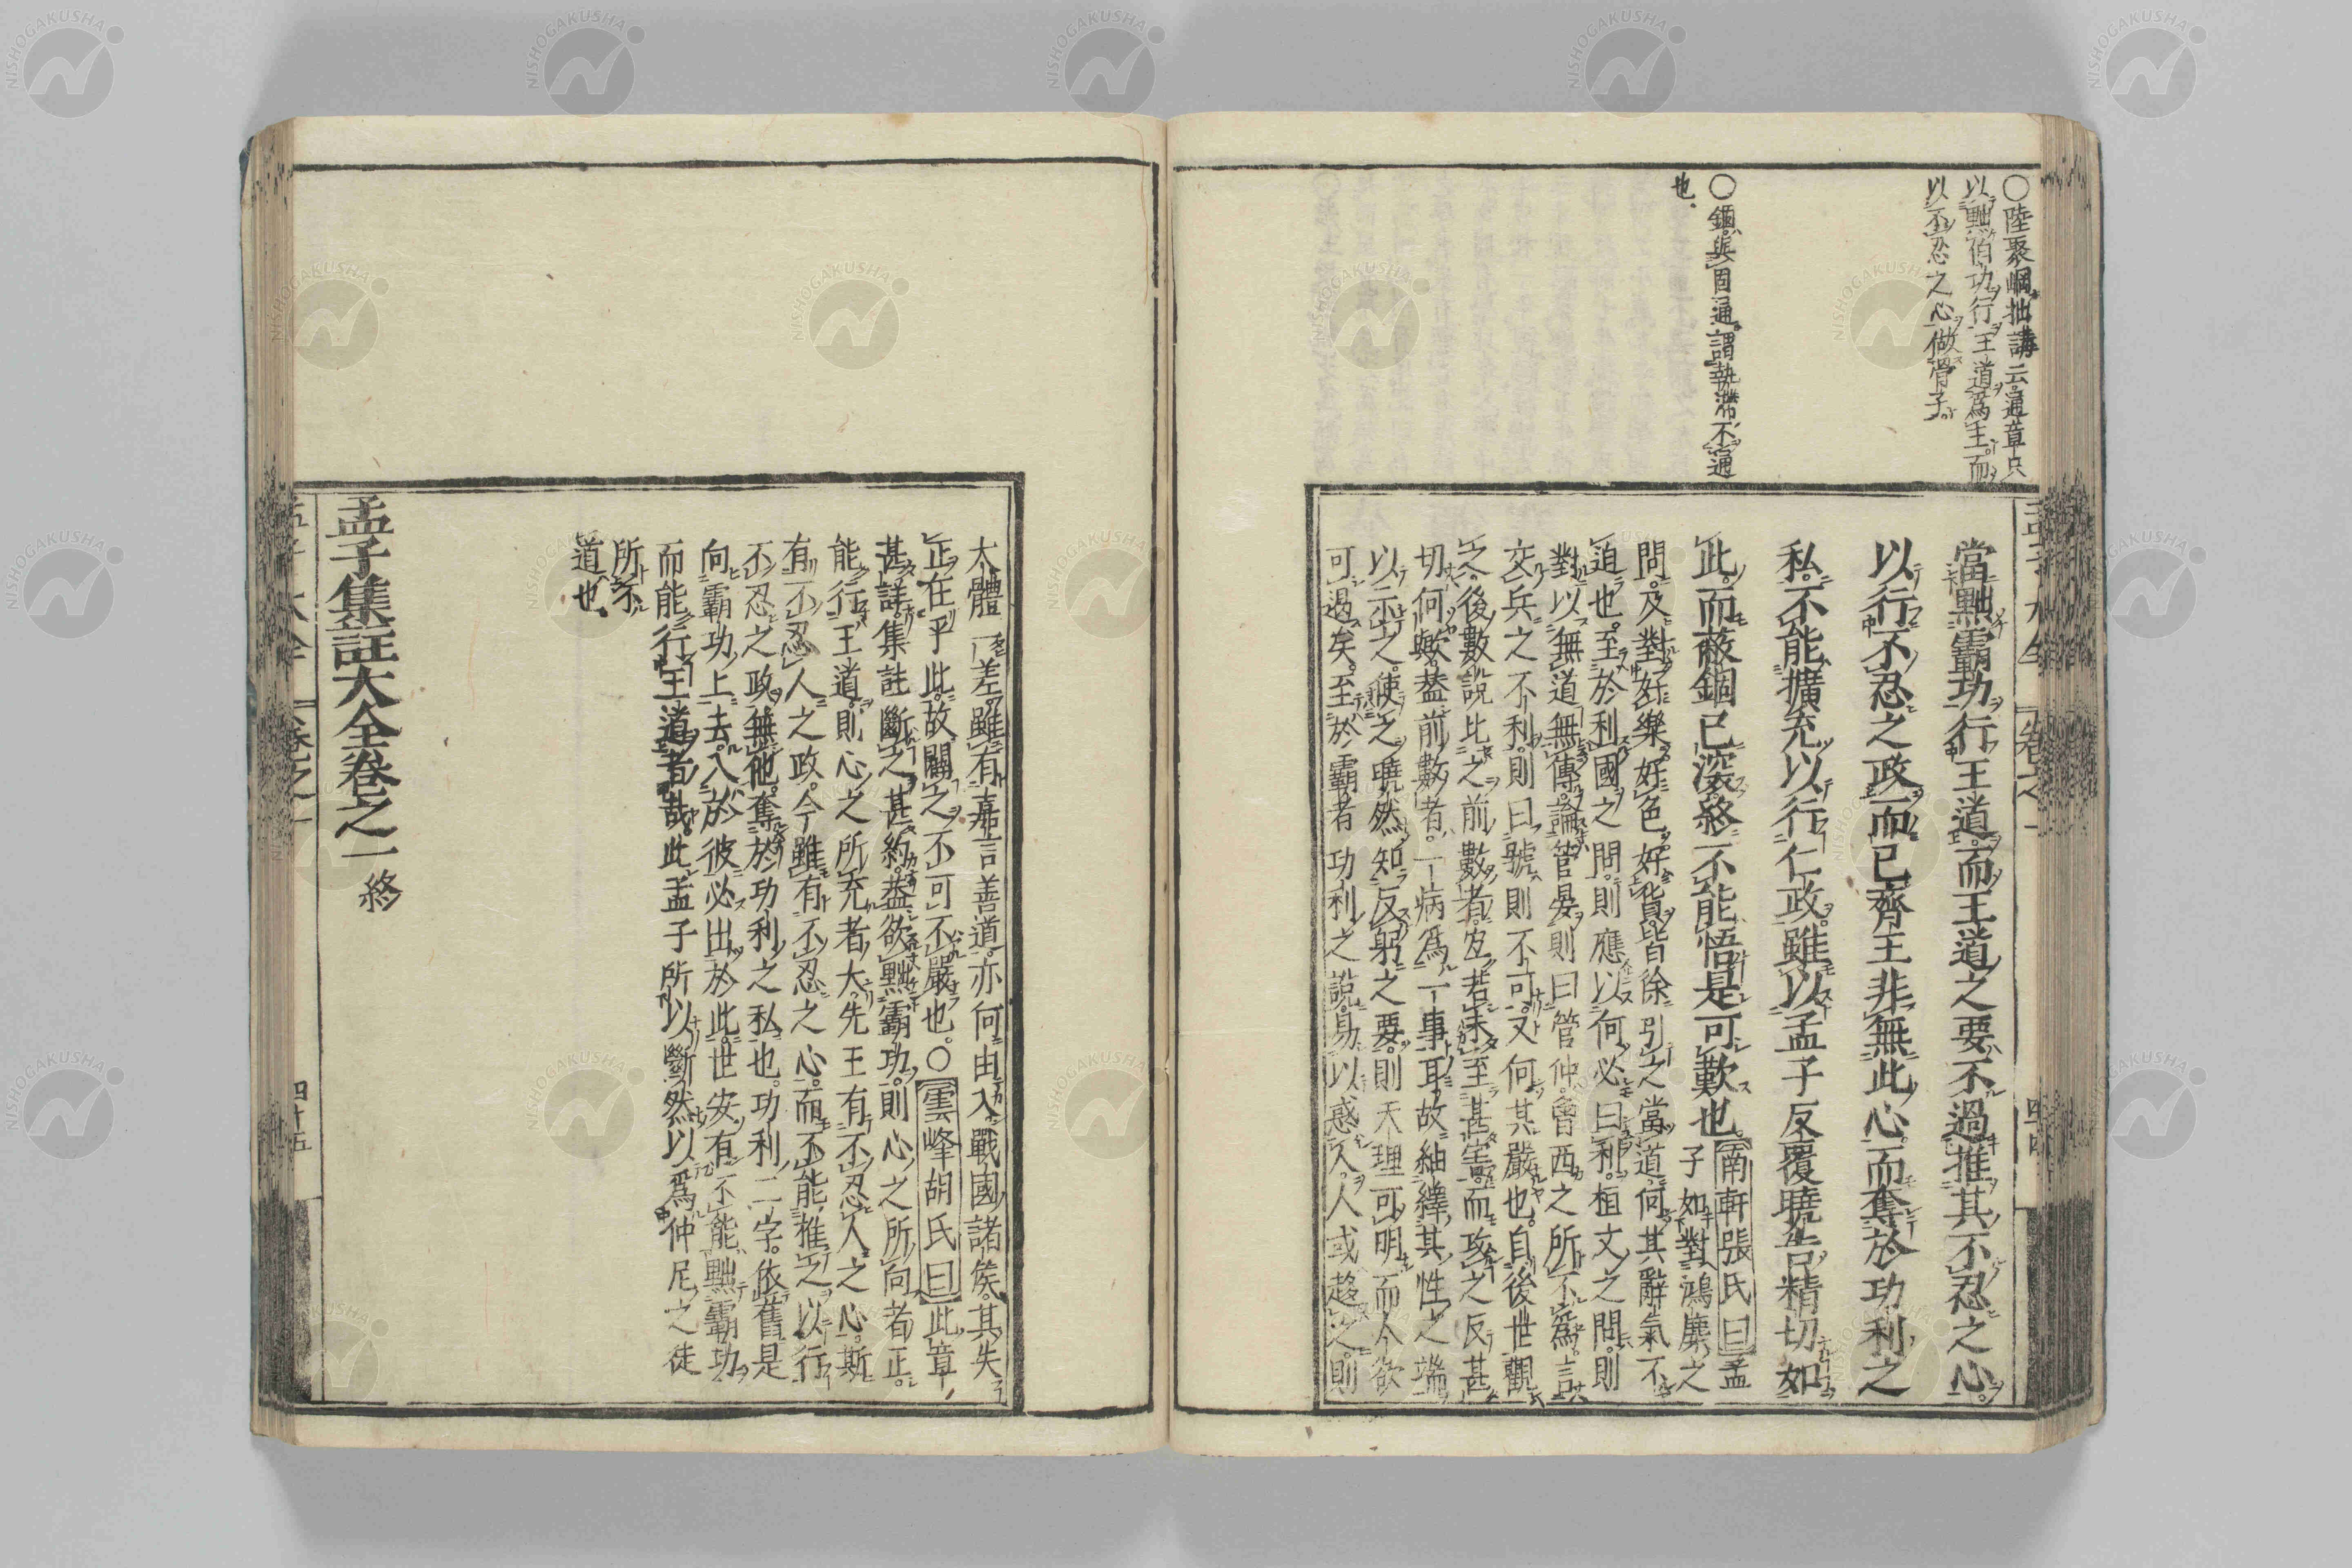 ○陸聚岡拙講云通章只
以黜伯功行王道爲主而
以不忍之心做骨子
○錮與固通謂執滯不通
也
當黜霸功行王道而王道之要不過推其不忍之心
以行不忍之政而已齊王非無此心而奪於功利之
私不能擴充以行仁政雖以孟子反覆曉告精切如
此而蔽錮已深終不能悟是可歎也南軒張氏曰孟
子如對鴻麋之
問及對好樂好色好貨皆徐引之當道何其辭氣不
迫也至於利國之問則應以何必曰利桓文之問則
對以無道無傳論管晏則曰管仲曾西之所不爲言
交兵之不利則曰號則不可又何其嚴也自後世觀
之後數說比之前數者宜若未至甚害而攻之反甚
切何歟蓋前數者一病爲一事耳故紬繹其性之端
以示之使之曉然知反躬之要則天理可明而今欲
可遏矣至於霸者功利之說易以惑人人或趨之則
大體一差雖有嘉言善道亦何由入戰國諸侯其失
正在乎此故闢之不可不嚴也○雲峰胡氏曰此章
甚詳集註斷之甚約蓋欲黜霸功則心之所向者正
能行王道則心之所充者大先王有不忍人之心斯
有不忍人之政今雖有不忍之心而不能推之以行
不忍之政無他奪於功利之私也功利二字依舊是
向霸功上去入於彼必出於此世安有不能黜霸功
而能行王道者哉此孟子所以斷然以爲仲尼之徒
所不
道也
孟子集註大全卷之一終
四十五